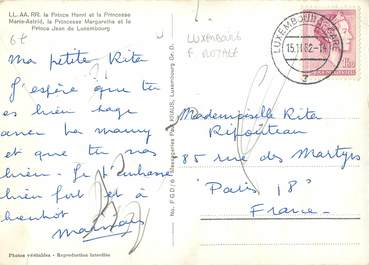 LL. AA. RR. le Prince Henri et la Princesse
Marie-Astrid, la Princesse Margaretha et le
Prince Jean de Luxembourg
6€
LUXEMBOURG
F ROYALE
LUXEMBOURG-GARE
15.11.62-14
3
Ma petite Rita
J'espère que tu
es bien sage
avec ta mamy
et que tu vas
bien. Je t'embrasse
bien fort et à
bientôt
No. F G D/6 Messageries Paul KRAUS, Luxembourg Gr. D.
Mademoiselle Rita
85 rue des Martyrs
Paris 18°
France.
Photos véritables - Reproduction interdite